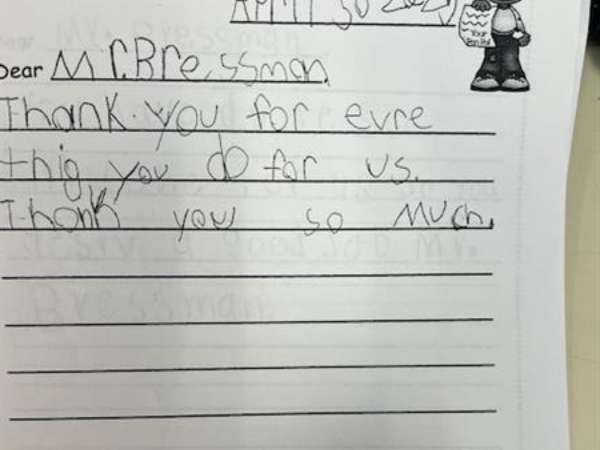 April 30
Dear Mr. Bressman
Thank you for evre
thig you do for us.
Thank you so much.